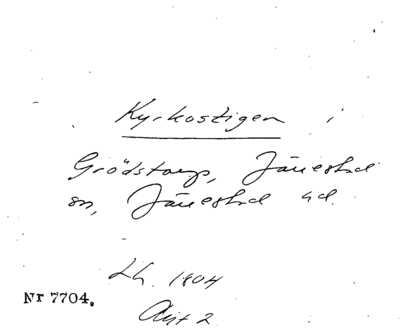 Kyrkostigen i
Grödstorp, Järrestad
sn, Järrestad hd.
Lh. 1804
Nr 7704.
Akt 2